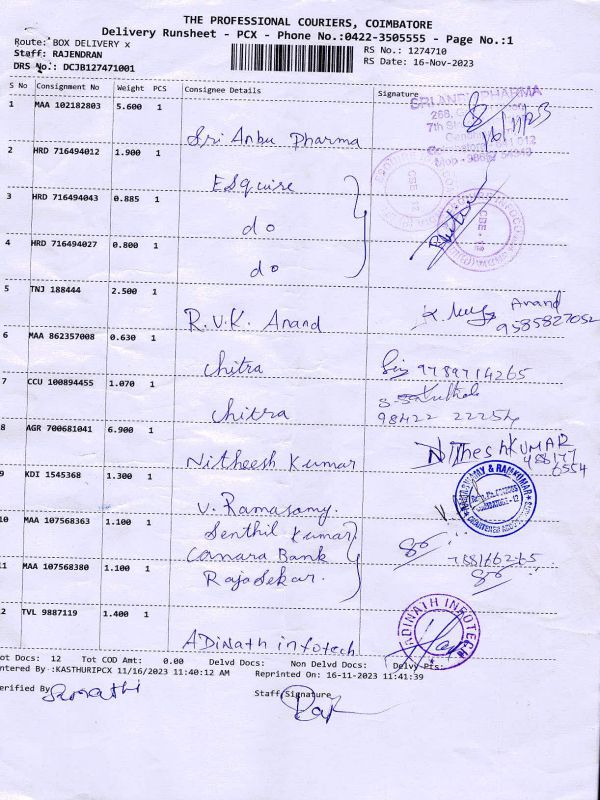 THE PROFESSIONAL COURIERS, COIMBATORE
Delivery Runsheet - PCX - Phone No.:0422-3505555 - Page No.:1
Route: BOX DELIVERY x
RS No.: 1274710
Staff: RAJENDRAN
RS Date: 16-Nov-2023
DRS No.: DCJB127471001
S No Consignment No Weight PCS Consignee Details Signature
1 MAA 102182803 5.600 1 Sri Anbu Pharma
SRI ANBU PHARMA
268,
7th
16/11/23
2 HRD 716494012 1.900 1 Esquire
3 HRD 716494043 0.885 1 do
CBE - 12
4 HRD 716494027 0.800 1 do
5 TNJ 188444 2.500 1 R.V.K. Anand
Anand
9585827052
6 MAA 862357008 0.630 1 Chitra
9789714265
7 CCU 100894455 1.070 1 Chitra
98422 22254
8 AGR 700681041 6.900 1 Nitheesh Kumar
NITheshKUMAR
9 KDI 1545368 1.300 1 V. Ramasamy.
10 MAA 107568363 1.100 1 Senthil Kumar
Canara Bank
11 MAA 107568380 1.100 1 Rajasekar.
2 TVL 9887119 1.400 1 ADinath infotech
ADINATH INFOTECH
ot Docs: 12 Tot COD Amt: 0.00 Delvd Docs: Non Delvd Docs: Delvy Pts:
ntered By :KASTHURIPCX 11/16/2023 11:40:12 AM Reprinted On: 16-11-2023 11:41:39
erified By
Staff Signature